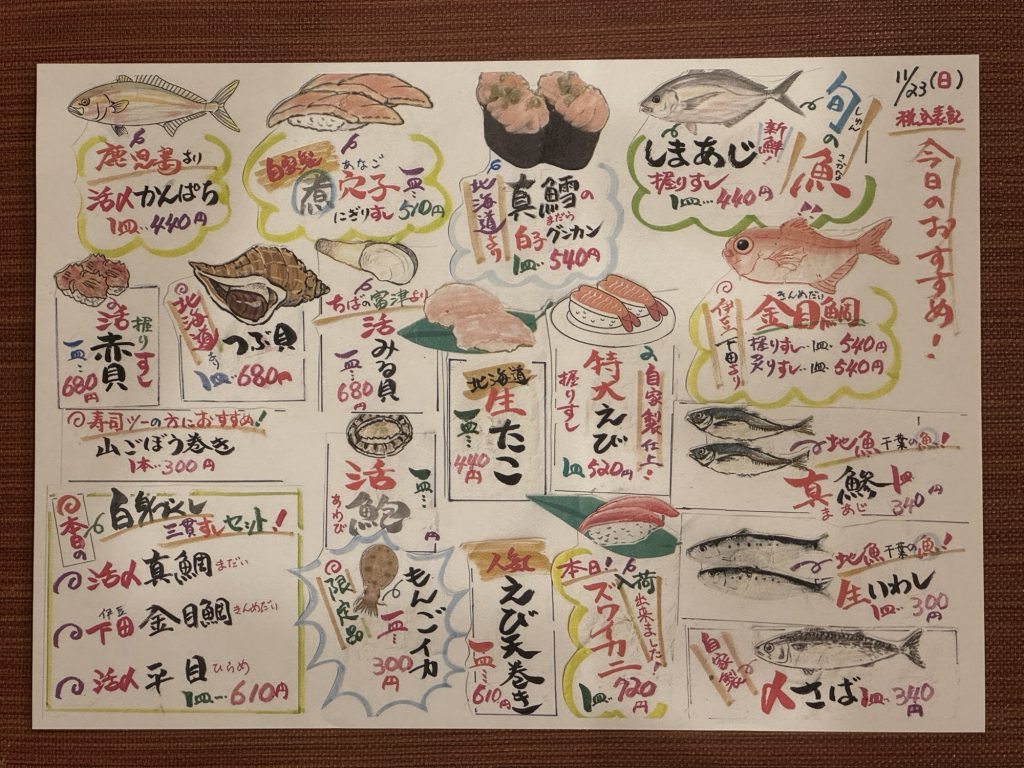 11/23(日)
税込表記
今日のおすすめ!
旬の魚
しゅん
さかな
新鮮!
しまあじ
握りすし
1皿…440円
北海道より
真鱈の
まだら
白子グンカン
1皿…540円
自家製
あなご
煮穴子
にぎりすし
一皿…510円
鹿児島より
活〆かんぱち
1皿…440円
伊豆下田より
きんめだい
金目鯛
握りすし…1皿…540円
炙りすし…1皿…540円
自家製仕上!
特大えび
握りすし
1皿520円
北海道
生たこ
一皿…440円
ちばの富津より
活みる貝
一皿…680円
北海道より
つぶ貝
1皿…680円
活赤貝
握りすし
一皿…680円
寿司ツーの方におすすめ!
山ごぼう巻き
1本…300円
地魚千葉の魚!
真鯵
まあじ
1皿340円
地魚千葉の魚!
生いわし
1皿…300円
自家製
〆さば
1皿…340円
本日!
入荷出来ました!
ズワイカニ
1皿…720円
人気
えび天巻き
一皿…610円
活鮑
あわび
一皿…円
限定品
もんごイカ
一皿…300円
本日の
白身づくし
三貫すしセット!
活〆真鯛まだい
伊豆
下田金目鯛きんめだい
活〆平目ひらめ
1皿…610円